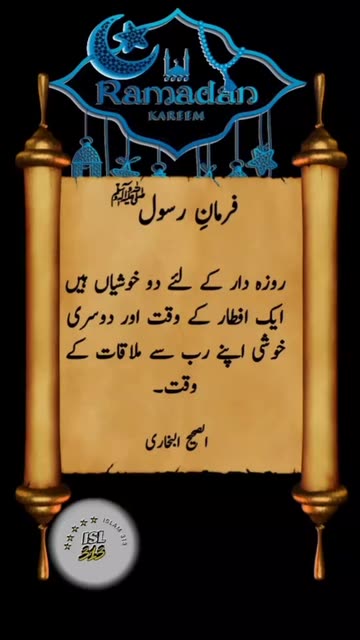 Ramadan
KAREEM
فرمانِ رسول ﷺ
روزہ دار کے لئے دو خوشیاں ہیں
ایک افطار کے وقت اور دوسری
خوشی اپنے رب سے ملاقات کے
وقت۔
الصحیح البخاری
ISLAM 313
ISL
313